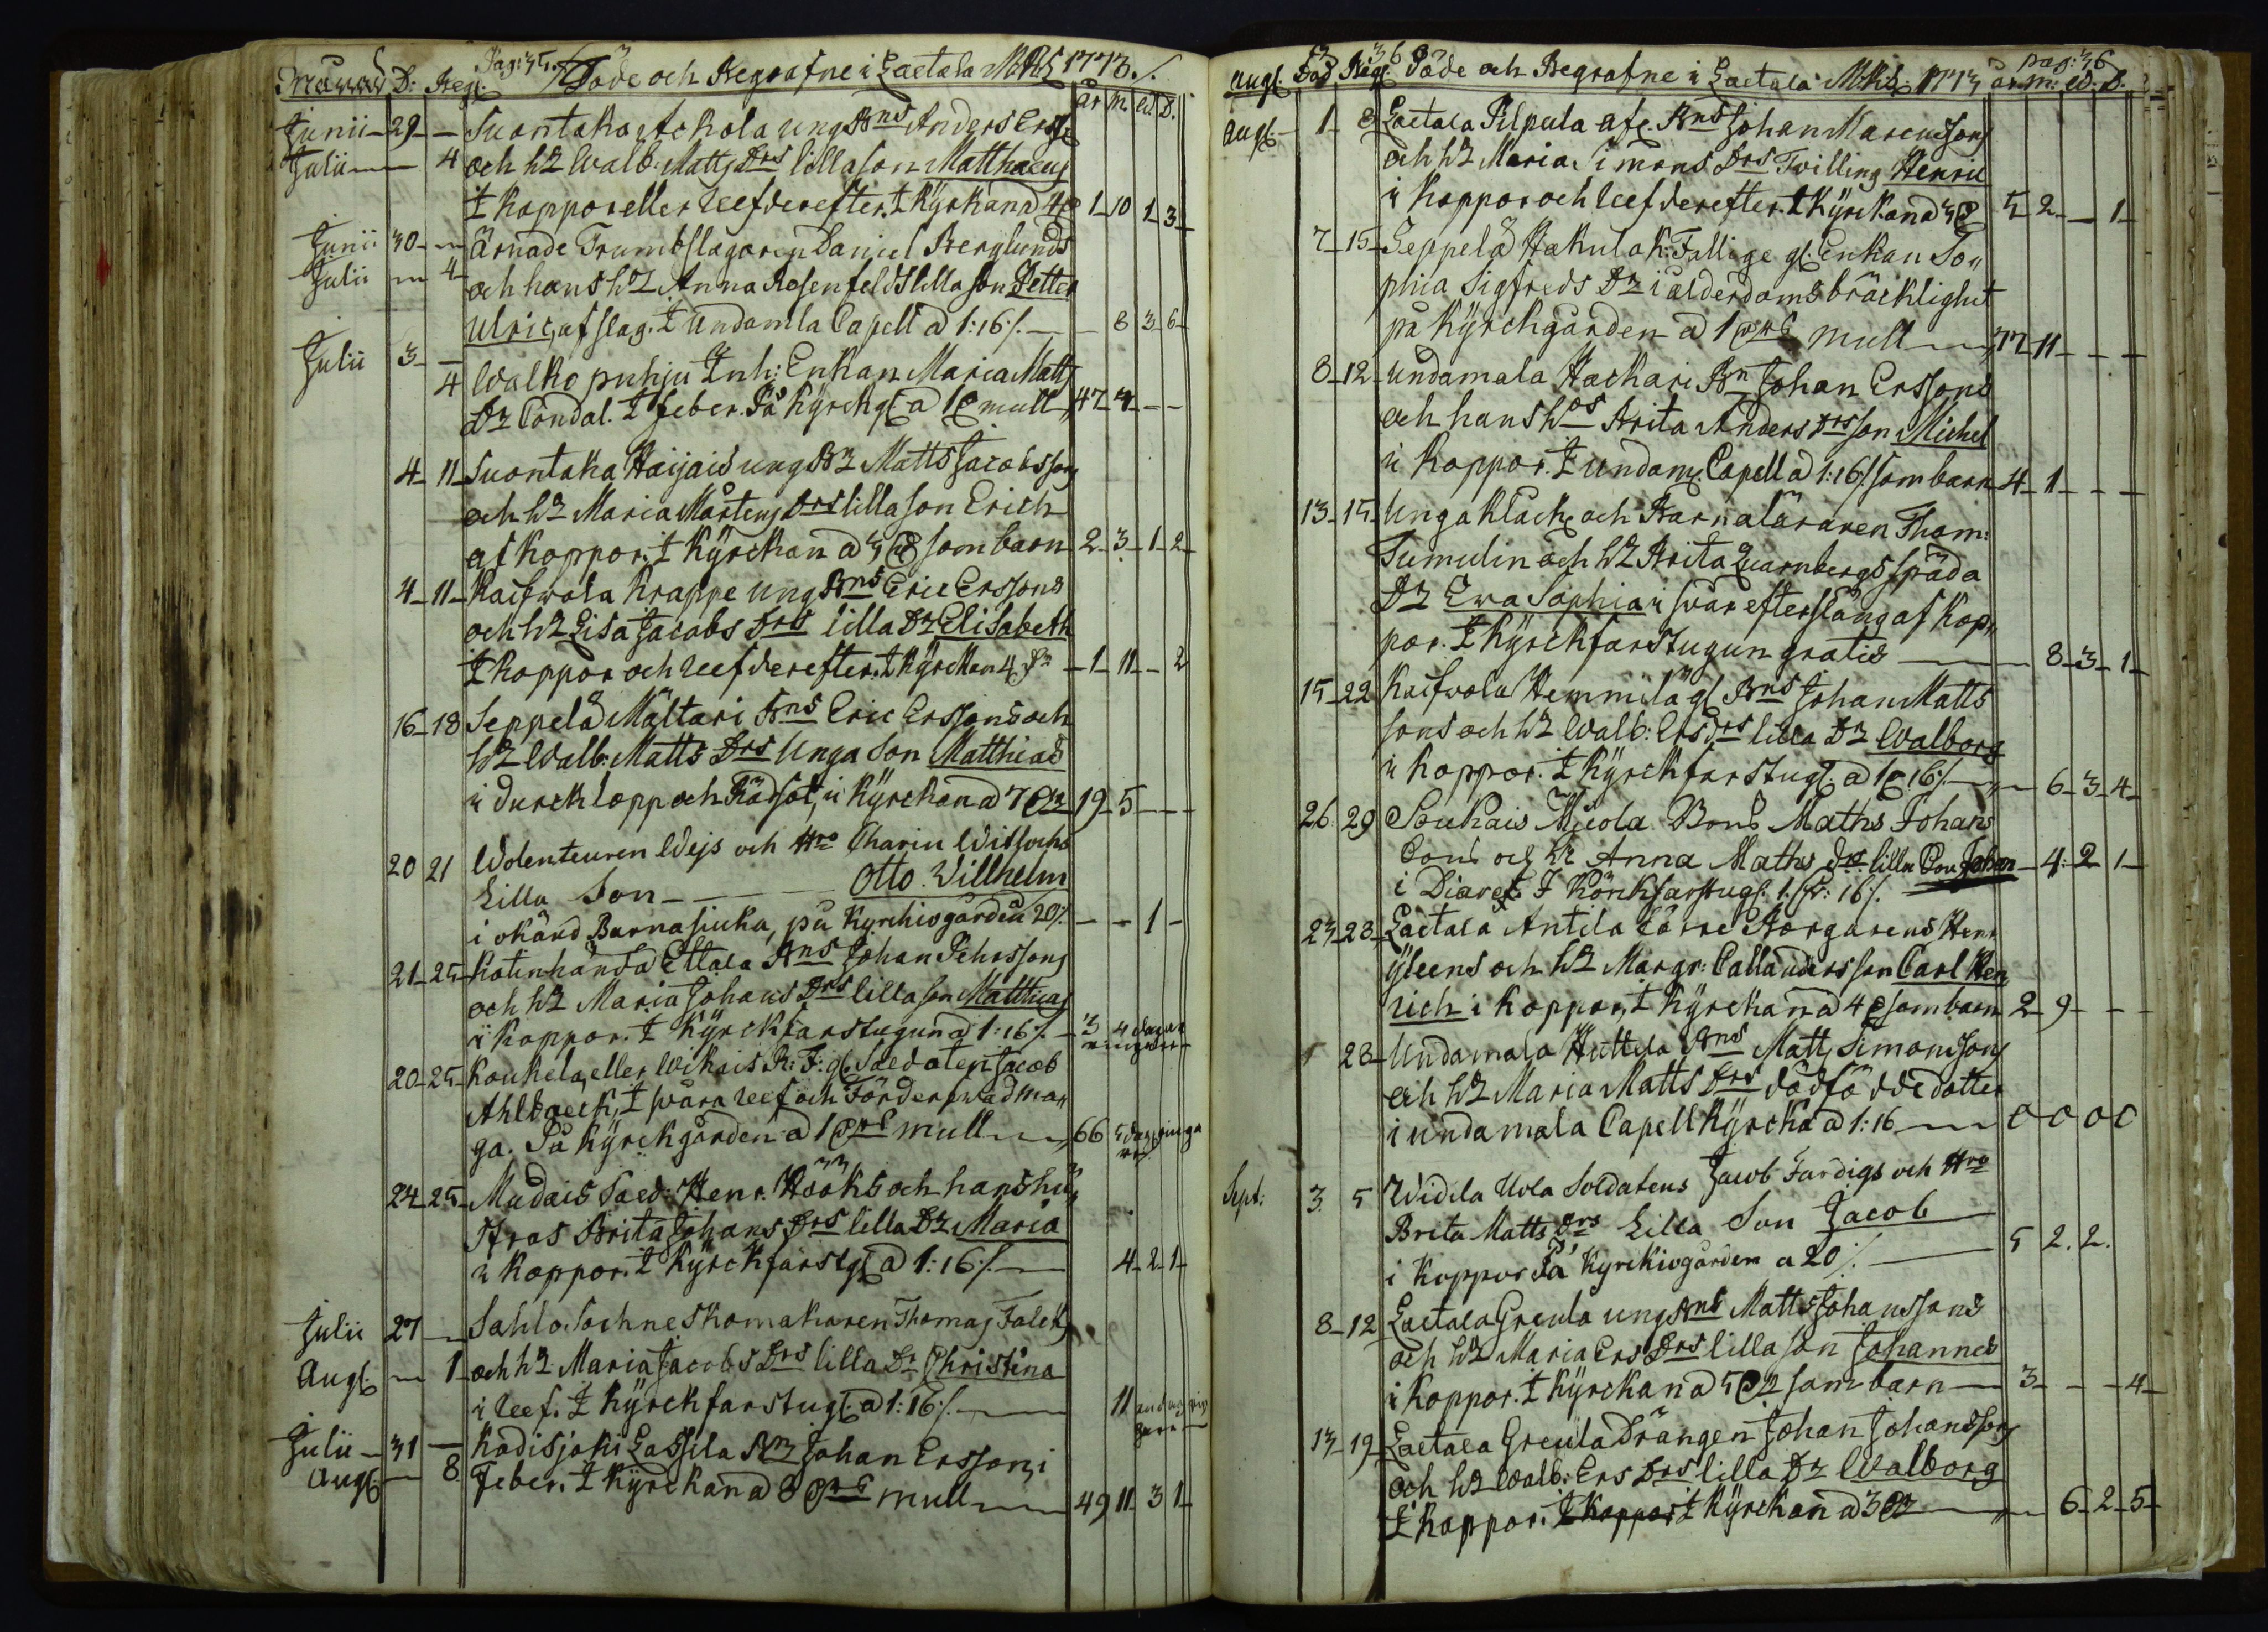 Pag: 35.
Månad D: Begr. Döde och Begrafne i Laetala MKS 1773./.
år m. W. D.
Junii 29 — Suontaka Askola ung Bns Anders Erss
Julii — 4 och h2 Walb: Matts Drs lilla son Matthaeus
I koppor eller leef derefter. I Kyrkan a 4 1 10 1 3
Junii 30 — Ärnade Trumbslagaren Daniel Berglunds
Julii — 4 och hans h2 Anna Rosenfelds lilla son Petter
Ulric, af slag. I Undamla Capell a 1:16./. — 8 3 6
Julii 3 —
4 Walko puhju Inh: Enkan Maria Matts
Dr Condal. I feber. På Kyrckg a 1 mull 47 4 — —
4 11 Suontaka Haijais ung B2 Matts Jacobsson
och h2 Maria Mårtens Drs lilla son Erich
af koppor. I Kyrckan a 3 som barn 2 3 1 2
4 11 Kaifwola Krappe ung Bns Eric Erssons
och h2 Lisa Jacobs Drs lilla Dr Elisabeth
I koppor och leef derefter. I Kyrckan 4 — 1 11 — 2
16 18 Seppelä Mältari Bns Eric Erssons och
h2 Walb: Matts Drs Unga Son Matthias
i durcklopp och Rådsot, i Kyrckan a 7 19 5 — —
20 21 Wolenteuren Weis och Hro Charin Witsocks
Lilla Son — Otto Willhelm
i okänd Barnasiuka, på Kyrckiogården 20./. — — 1 —
21 25 Katinhända Ellala Bns Johan Pehrssons
och h2 Maria Johans Drs lilla son Matthias
i koppor. I Kyrckfarstugun a 1:16./. — 3 4 dagar
20 25 Koukela, eller Wekais R: F: gl Soldaten Jacob
Ahlbaeck, I svåra leef och Förderfwad ma„
ga. På Kyrckgården a 1 mull 66
24 25 Mudais Sold: Henr. Hööks och hans hu„
stros Brita Johans Drs lilla Dr Maria
i koppor. I Kyrckfarstg a 1:16./. — 4 2 1
Julii 27 — Sahlo Sochne Skomakaren Thomas Falcks
Aug. — 1 och h2 Maria Jacobs Drs lilla Dr Christina
i leef. I Kyrckfarstug. a 1:16./. — 11
Julii 31 — Kodisjoki Lassila B2 Johan Ersson, i
Aug — 8 Feber. I Kyrckan a 8 mull 49 11 3 1
pag: 36
Aug. Död Begr. Döde och Begrafne i Laetala MKS: 1773 år m: W. D.
Aug. 1 8 Laetala Pilpula afl. Bns Johan Marcussons
och h2 Maria Simons Drs Twilling Henric
i koppor och leef derefter. I Kyrckan a 3 5 2 — 1
7 15 Seppelä Hakula K: Fattige gl. Enkan So„
phia Sigfreds Dr i ålderdoms bräcklighet
på Kyrckgården a 1 mull 77 11 — —
8 12 Undamala Hackari Bn Johan Erssons
och hans hos Brita Anders Drs son Michel
i koppor. I Undam. Capell a 1:16./. som barn 4 1 — —
13 15 Unga Klack och Barnaläraren Thom:
Tumulin och h2 Brita Quarnbergs späda
Dr Ewa Sophia i svår efterslang af kop„
por. I Kyrckfarstugun gratis — 8 3 1
15 22 Kaifwola Hemmilä gl Bns Johan Matts
sons och h2 Walb: Ers Drs lilla Dr Walborg
i koppor. I Kyrckfarstug. a 1 16./. — 6 3 4
26 29 Soukais Micola Bons Maths Johans
Sons och h2 Anna Maths drs lilla Son Johan — 4 2 1
i Diare. I Körckfarstug. 1. : 16/.
23 28 Laetala Antila Lärre Borgarens Henr
Yleens och h2 Margr: Callanders son Carl Hen„
rich i koppor, I Kyrckan a 4 som barn 2 9 — —
28 Undamala Huttila Bns Matts Simonsons
och h2 Maria Matts Drs dödfödde dotter
i Undamala Capell Kyrcka a 1:16 — 0 0 0 0
Sept: 3 5 Widila Uola Soldatens Jacob Färdigs och Hro
Brita Matts Drs Lilla Son Jacob
i koppor På Kyrckiogården a 20./. — 5 2. 2.
8 12 Laetala Greula ung Bns Matts Johanssons
och h2 Maria Ers Drs lilla son Johannes
i koppor. I Kyrckan a 5 som barn — 3 — — 4
13 19 Laetala Greula Drängen Johan Johanssons
och h2 Walb: Ers Drs lilla Dr Walborg
I koppor. I koppor I Kyrckan a 3 — 6 2 5